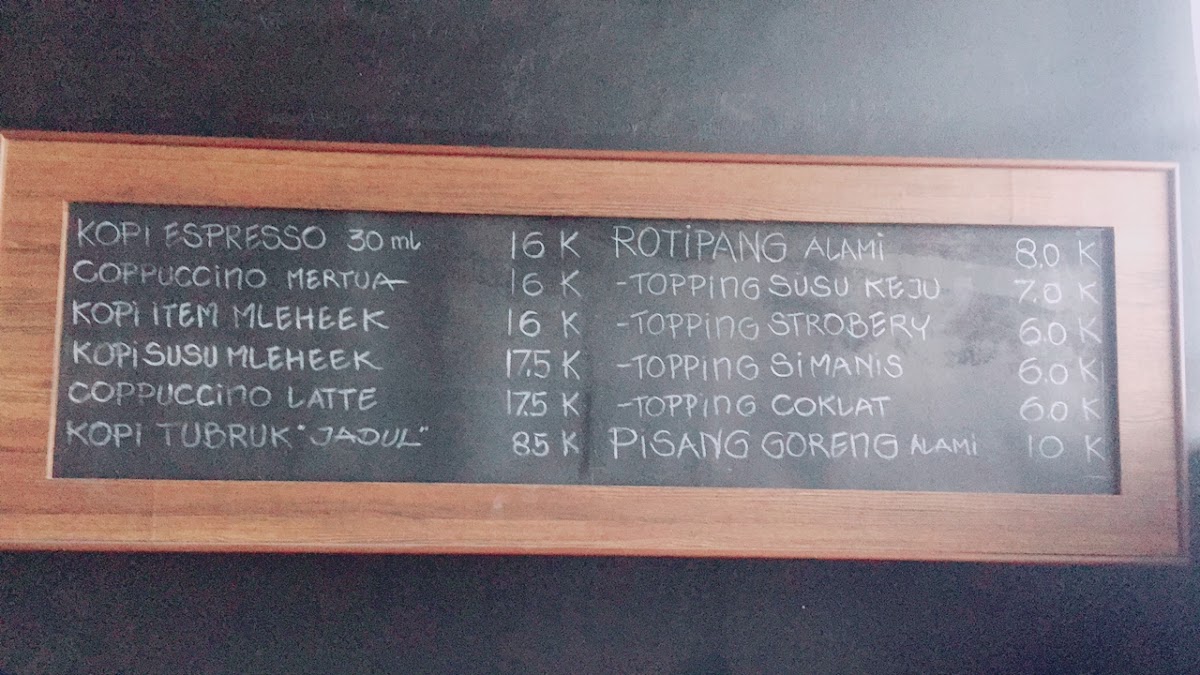 KOPI ESPRESSO 30 ml 16 K
COPPUCCINO MERTUA 16 K
KOPI ITEM MLEHEEK 16 K
KOPI SUSU MLEHEEK 17.5 K
COPPUCCINO LATTE 17.5 K
KOPI TUBRUK "JADUL" 85 K
ROTIPANG ALAMI 8.0 K
-TOPPING SUSU KEJU 7.0 K
-TOPPING STROBERY 6.0 K
-TOPPING SIMANIS 6.0 K
-TOPPING COKLAT 6.0 K
PISANG GORENG ALAMI 10 K